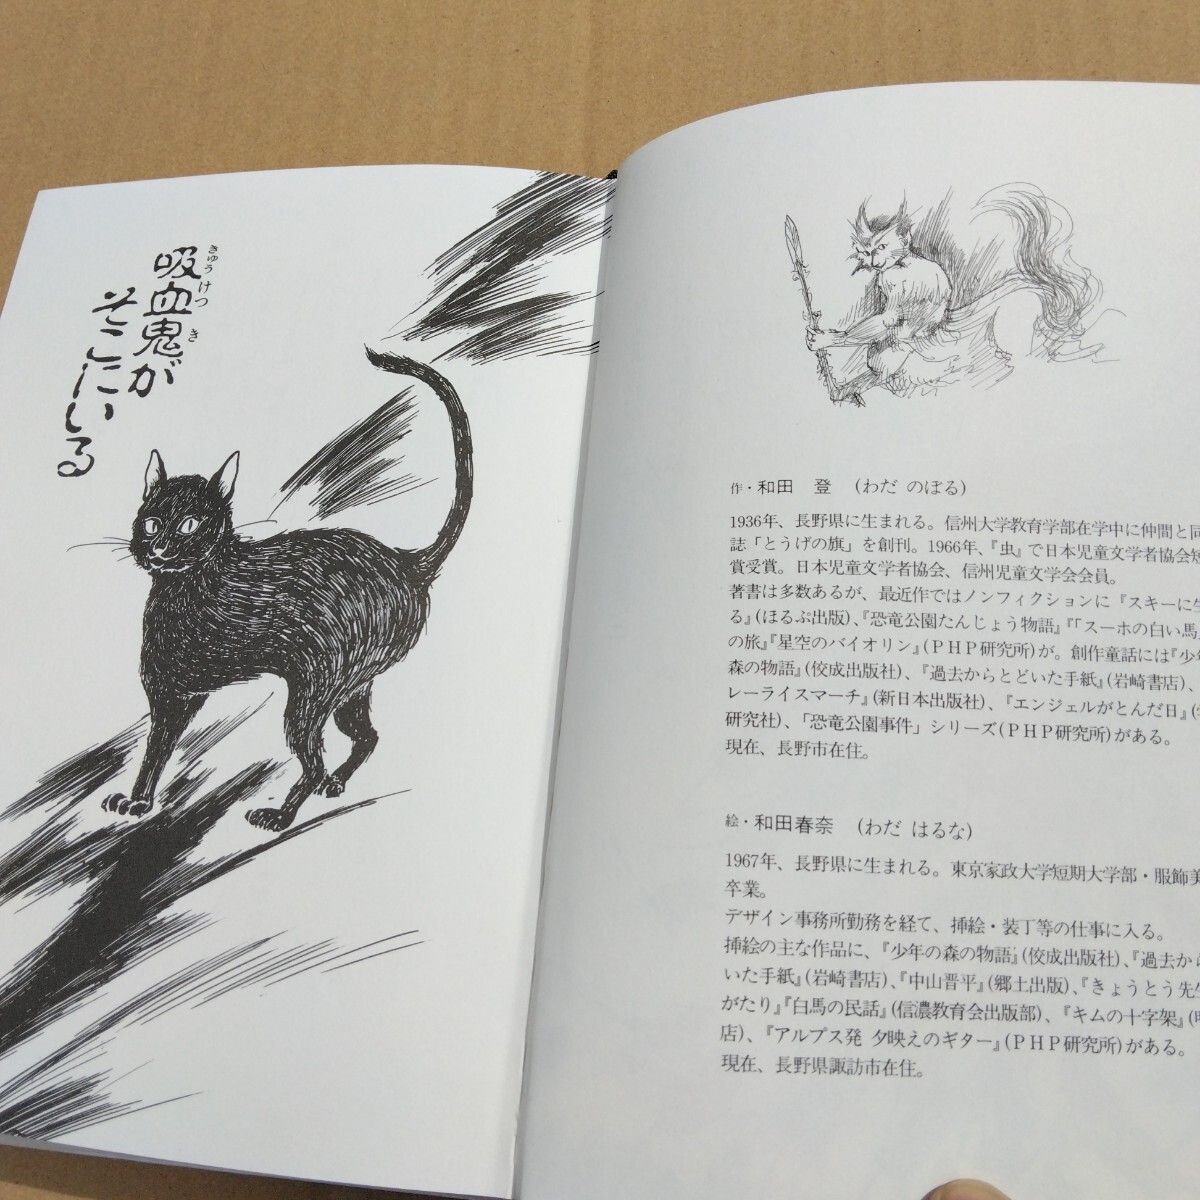 吸血鬼が
きゅうけつき
そこにいる
作・和田　登　(わだ のぼる)
1936年、長野県に生まれる。信州大学教育学部在学中に仲間と同
誌「とうげの旗」を創刊。1966年、『虫』で日本児童文学者協会短
賞受賞。日本児童文学者協会、信州児童文学会会員。
著書は多数あるが、最近作ではノンフィクションに『スキーに生
る』(ほるぷ出版)、『恐竜公園たんじょう物語』『「スーホの白い馬」
の旅』『星空のバイオリン』(ＰＨＰ研究所)が。創作童話には『少年
森の物語』(佼成出版社)、『過去からとどいた手紙』(岩崎書店)、
レーライスマーチ』(新日本出版社)、『エンジェルがとんだ日』(
研究社)、「恐竜公園事件」シリーズ(ＰＨＰ研究所)がある。
現在、長野市在住。
絵・和田春奈　(わだ はるな)
1967年、長野県に生まれる。東京家政大学短期大学部・服飾美
卒業。
デザイン事務所勤務を経て、挿絵・装丁等の仕事に入る。
挿絵の主な作品に、『少年の森の物語』(佼成出版社)、『過去から
いた手紙』(岩崎書店)、『中山晋平』(郷土出版)、『きょうとう先生
がたり』『白馬の民話』(信濃教育会出版部)、『キムの十字架』(
店)、『アルプス発 夕映えのギター』(ＰＨＰ研究所)がある。
現在、長野県諏訪市在住。